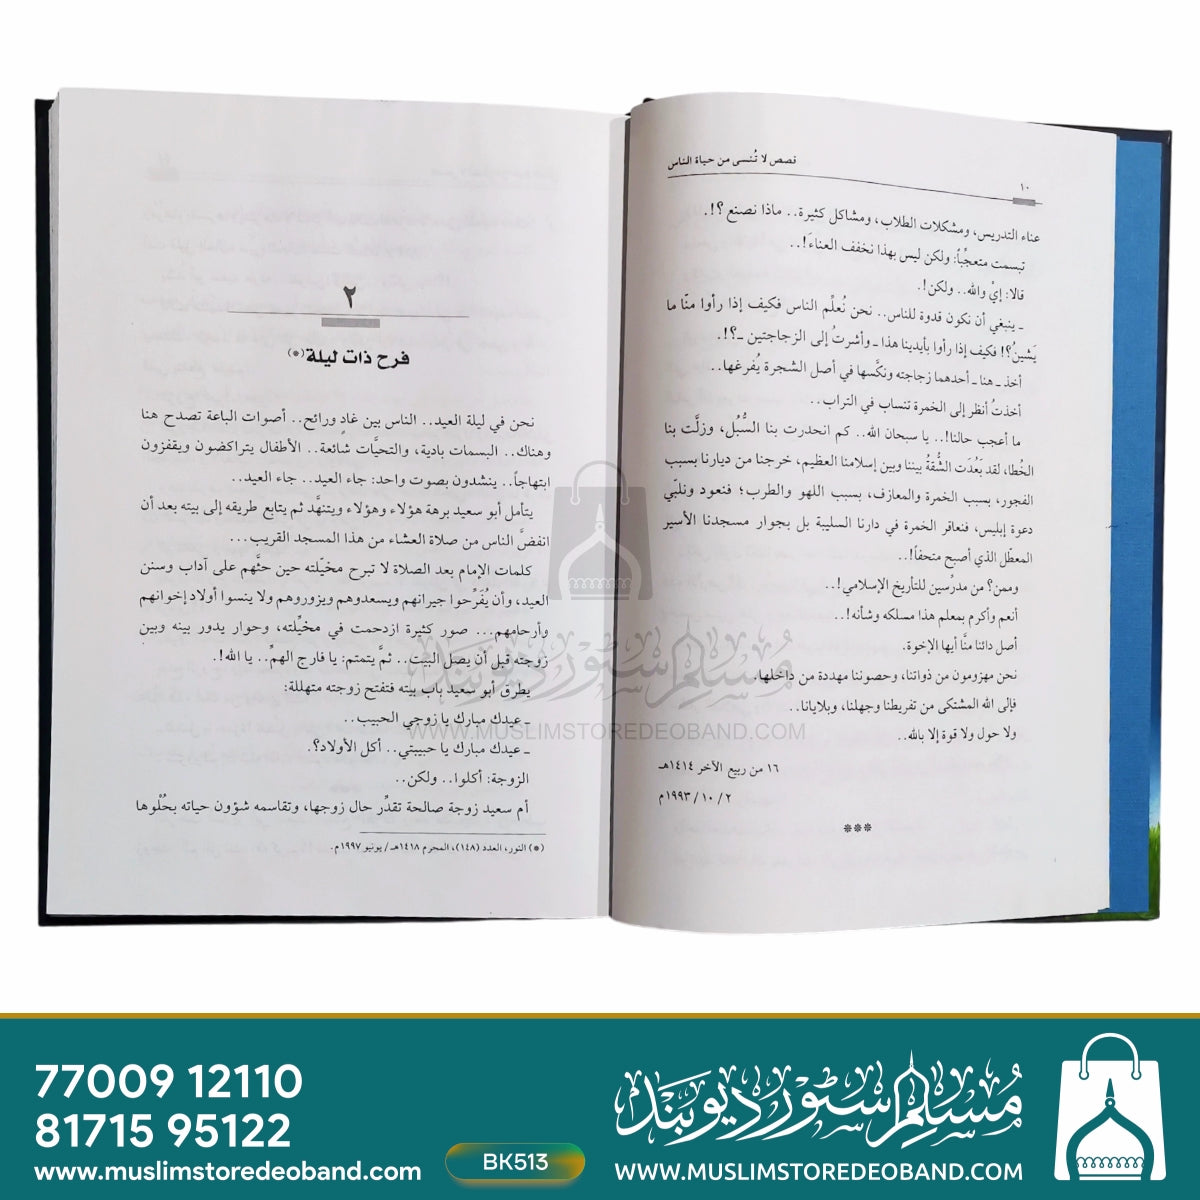 قصص لا تُنسى من حياة الناس
١٠
عناء التدريس، ومشكلات الطلاب، ومشاكل كثيرة.. ماذا نصنع ؟!.
تبسمت متعجِّباً: ولكن ليس بهذا نخفف العناءَ!..
قالا: إيْ والله.. ولكن!.
ـ ينبغي أن نكون قدوة للناس.. نحن نُعلِّم الناس فكيف إذا رأوا منّا ما
يَشينُ؟! فكيف إذا رأوا بأيدينا هذا ـ وأشرتُ إلى الزجاجتين ـ؟!.
أخذ ـ هنا ـ أحدهما زجاجته ونكَّسها في أصل الشجرة يُفرغها..
أخذتُ أنظر إلى الخمرة تنساب في التراب..
ما أعجب حالنا!.. يا سبحان الله.. كم انحدرت بنا السُّبُل، وزلَّت بنا
الخُطا، لقد بَعُدَت الشُّقةُ بيننا وبين إسلامنا العظيم، خرجنا من ديارنا بسبب
الفجور، بسبب الخمرة والمعازف، بسبب اللهو والطرب؛ فنعود ونلبّي
دعوة إبليس، فنعاقر الخمرة في دارنا السليبة بل بجوار مسجدنا الأسير
المعطّل الذي أصبح متحفاً!..
وممن؟ من مدرِّسين للتأريخ الإسلامي!..
أنعم وأكرم بمعلم هذا مسلكه وشأنه!..
أصل دائنا منَّا أيها الإخوة.
نحن مهزومون من ذواتنا، وحصوننا مهددة من داخلها.
فإلى الله المشتكى من تفريطنا وجهلنا، وبلايانا..
ولا حول ولا قوة إلا بالله..
١٦ من ربيع الآخر ١٤١٤هـ
٢ / ١٠ / ١٩٩٣م
***
٢
فرح ذات ليلة(*)
نحن في ليلة العيد.. الناس بين غادٍ ورائح.. أصوات الباعة تصدح هنا
وهناك.. البسمات بادية، والتحيَّات شائعة.. الأطفال يتراكضون ويقفزون
ابتهاجاً.. ينشدون بصوت واحد: جاء العيد.. جاء العيد..
يتأمل أبو سعيد برهة هؤلاء وهؤلاء ويتنهَّد ثم يتابع طريقه إلى بيته بعد أن
انفضَّ الناس من صلاة العشاء من هذا المسجد القريب...
كلمات الإمام بعد الصلاة لا تبرح مخيّلته حين حثَّهم على آداب وسنن
العيد، وأن يُفَرِّحوا جيرانهم ويسعدوهم ويزوروهم ولا ينسوا أولاد إخوانهم
وأرحامهم... صور كثيرة ازدحمت في مخيِّلته، وحوار يدور بينه وبين
زوجته قبل أن يصل البيت.. ثمَّ يتمتم: يا فارج الهمِّ.. يا الله!.
يطرق أبو سعيد باب بيته فتفتح زوجته متهللة:
ـ عيدك مبارك يا زوجي الحبيب..
ـ عيدك مبارك يا حبيبتي.. أكل الأولاد؟.
الزوجة: أكلوا.. ولكن..
أم سعيد زوجة صالحة تقدِّر حال زوجها، وتقاسمه شؤون حياته بحُلْوها
(*) النور، العدد (١٤٨)، المحرم ١٤١٨هـ/ يونيو ١٩٩٧م.
مسلم سٹور دیوبند
WWW.MUSLIMSTOREDEOBAND.COM
77009 12110
81715 95122
www.muslimstoredeoband.com
BK513
مسلم سٹور دیوبند
WWW.MUSLIMSTOREDEOBAND.COM